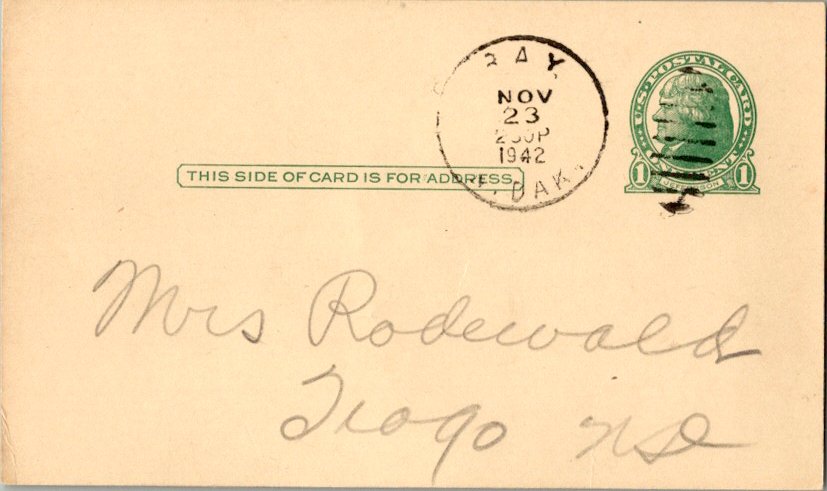 RAY
NOV
23
230P
1942
N. DAK.
U.S. POSTAL CARD
ONE CENT
1 JEFFERSON 1
THIS SIDE OF CARD IS FOR ADDRESS
Mrs Rodewald
Tiogo ND